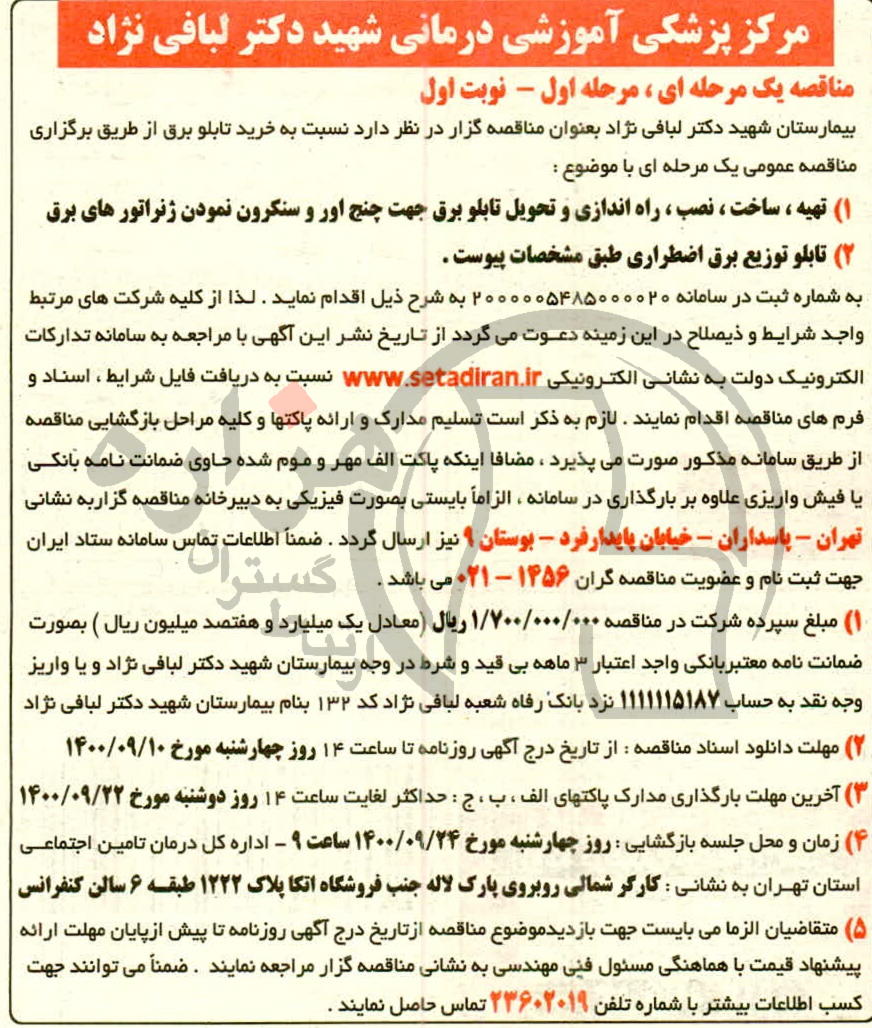 مرکز پزشکی آموزشی درمانی شهید دکتر لبافی نژاد
مناقصه یک مرحله ای ، مرحله اول - نوبت اول
بیمارستان شهید دکتر لبافی نژاد بعنوان مناقصه گزار در نظر دارد نسبت به خرید تابلو برق از طریق برگزاری
مناقصه عمومی یک مرحله ای با موضوع :
۱) تهیه ، ساخت ، نصب ، راه اندازی و تحویل تابلو برق جهت چنج اور و سنکرون نمودن ژنراتور های برق
۲) تابلو توزیع برق اضطراری طبق مشخصات پیوست .
به شماره ثبت در سامانه ۲۰۰۰۰۰۵۴۸۵۰۰۰۰۲۰ به شرح ذیل اقدام نماید . لذا از کلیه شرکت های مرتبط
واجد شرایط و ذیصلاح در این زمینه دعوت می گردد از تاریخ نشر این آگهی با مراجعه به سامانه تدارکات
الکترونیک دولت به نشانی الکترونیکی www.setadiran.ir نسبت به دریافت فایل شرایط ، اسناد و
فرم های مناقصه اقدام نمایند . لازم به ذکر است تسلیم مدارک و ارائه پاکتها و کلیه مراحل بازگشایی مناقصه
از طریق سامانه مذکور صورت می پذیرد ، مضافا اینکه پاکت الف مهر و موم شده حاوی ضمانت نامه بانکی
یا فیش واریزی علاوه بر بارگذاری در سامانه ، الزاماً بایستی بصورت فیزیکی به دبیرخانه مناقصه گزاربه نشانی
تهران - پاسداران - خیابان پایدارفرد - بوستان ۹ نیز ارسال گردد . ضمناً اطلاعات تماس سامانه ستاد ایران
جهت ثبت نام و عضویت مناقصه گران ۱۴۵۶ - ۰۲۱ می باشد .
۱) مبلغ سپرده شرکت در مناقصه ۱/۷۰۰/۰۰۰/۰۰۰ ریال (معادل یک میلیارد و هفتصد میلیون ریال ) بصورت
ضمانت نامه معتبربانکی واجد اعتبار ۳ ماهه بی قید و شرط در وجه بیمارستان شهید دکتر لبافی نژاد و یا واریز
وجه نقد به حساب ۱۱۱۱۱۱۵۱۸۷ نزد بانک رفاه شعبه لبافی نژاد کد ۱۳۲ بنام بیمارستان شهید دکتر لبافی نژاد
۲) مهلت دانلود اسناد مناقصه : از تاریخ درج آگهی روزنامه تا ساعت ۱۴ روز چهارشنبه مورخ ۱۴۰۰/۰۹/۱۰
۳) آخرین مهلت بارگذاری مدارک پاکتهای الف ، ب ، ج : حداکثر لغایت ساعت ۱۴ روز دوشنبه مورخ ۱۴۰۰/۰۹/۲۲
۴) زمان و محل جلسه بازگشایی : روز چهارشنبه مورخ ۱۴۰۰/۰۹/۲۴ ساعت ۹ - اداره کل درمان تامین اجتماعی
استان تهران به نشانی : کارگر شمالی روبروی پارک لاله جنب فروشگاه اتکا پلاک ۱۲۲۲ طبقه ۶ سالن کنفرانس
۵) متقاضیان الزما می بایست جهت بازدیدموضوع مناقصه ازتاریخ درج آگهی روزنامه تا پیش ازپایان مهلت ارائه
پیشنهاد قیمت با هماهنگی مسئول فنی مهندسی به نشانی مناقصه گزار مراجعه نمایند . ضمناً می توانند جهت
کسب اطلاعات بیشتر با شماره تلفن ۲۳۶۰۲۰۱۹ تماس حاصل نمایند .
هزاره
گستران